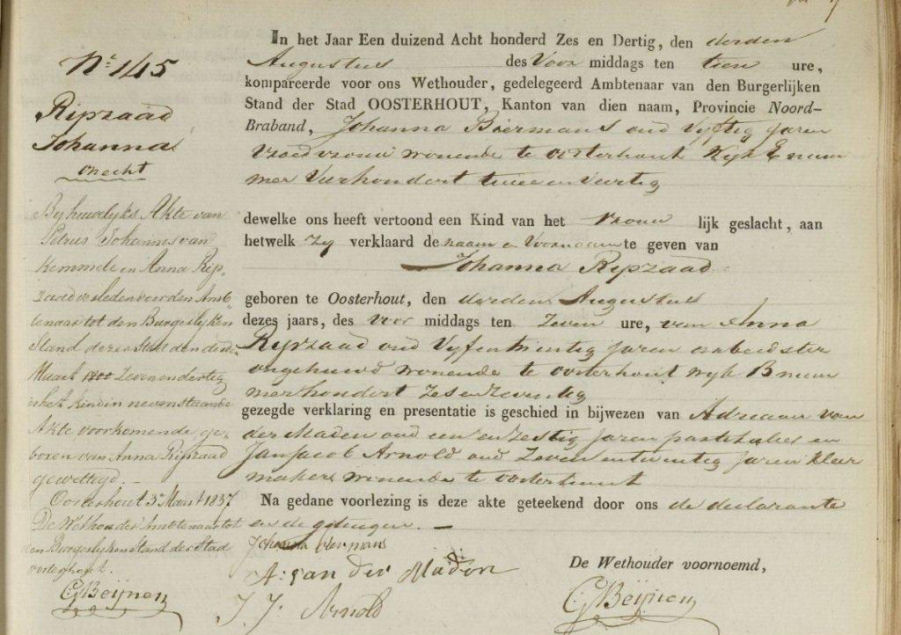 No 145
Ripzaad
Johanna
onecht
By huwelijks Akte van
Petrus Johannes van
Hemmde en Anna Rip,
zaad verleden voor den Amb,
tenaar tot den Burgerlyken
Stand dezer Stad den derden
Maart 1800 Zevenendertig
is het kind in nevenstaande
Akte voorkomende, ge,
boren van Anna Ripzaad
gewettigd. –
Oosterhout 3 Maart 1837
De Wethouder Ambtenaar tot
den Burgerlyken Stand der Stad
CJBeijnen
In het Jaar Een duizend Acht honderd Zes en Dertig, den derden
Augustus des Voor middags ten tien ure,
kompareerde voor ons Wethouder, gedelegeerd Ambtenaar van den Burgerlijken
Stand der Stad OOSTERHOUT, Kanton van dien naam, Provincie Noord-
Braband, Johanna Biermans oud vyftig jaren
Vroedvrouw wonende te oosterhout Wyk E num
mer Vierhondert twee en veertig
dewelke ons heeft vertoond een Kind van het Vrouw lijk geslacht, aan
hetwelk zy verklaard de naam en Voornaam te geven van
Johanna Ripzaad
geboren te Oosterhout, den derden Augustus
dezes jaars, des voor middags ten Zeven ure, van Anna
Ripzaad oud Vyfentwintig jaren arbeidster
ongehuwd wonende te oosterhout wyk B num
merhondert Zes en Zeventig
gezegde verklaring en presentatie is geschied in bijwezen van Adriaan van
der Maden oud een en zestig jaren en
Jan Jacob Arnold oud Zeven en twintig jaren kleer
maker wonende te oosterhout
Na gedane voorlezing is deze akte geteekend door ons de declarante
en de getuigen. –
Johanna Biermans
A: van der Maden
J. J. Arnold
De Wethouder voornoemd,
CJBeijnen